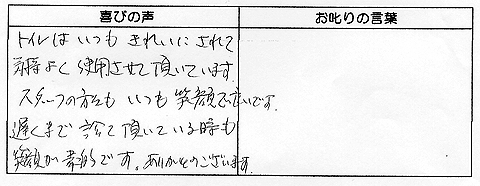 喜びの声 お叱りの言葉
トイレはいつもきれいにされて
気持よく使用させて頂いています。
スタッフの方もいつも笑顔で良いです。
遅くまで診て頂いている時も
笑顔が素的です。ありがとうございます。